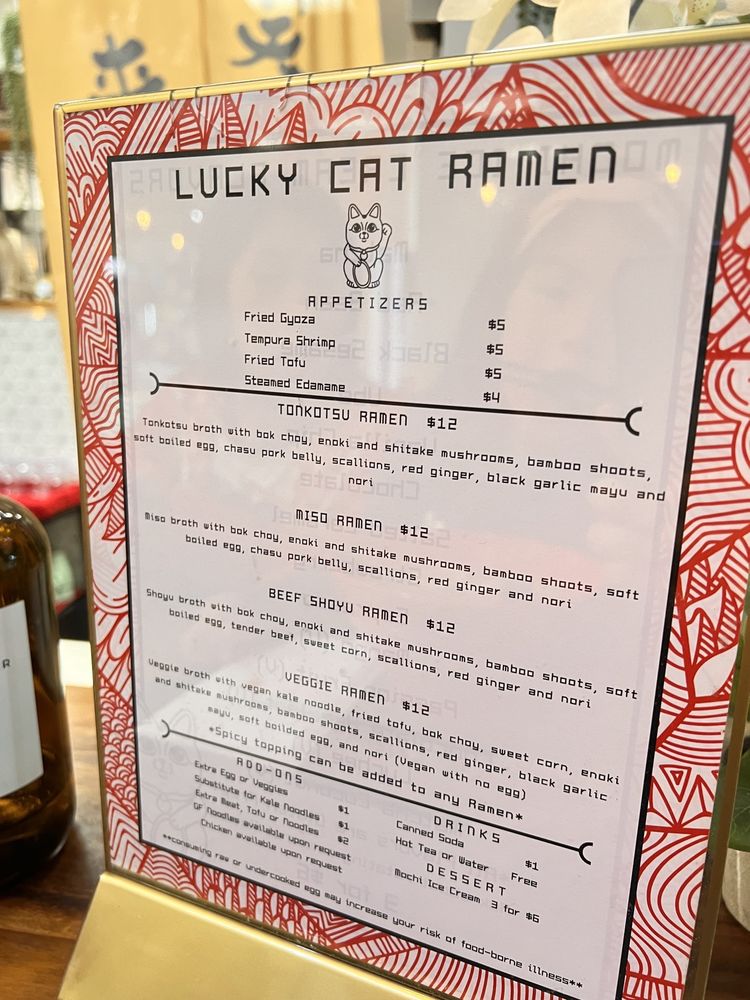 LUCKY CAT RAMEN
APPETIZERS
Fried Gyoza $5
Tempura Shrimp $5
Fried Tofu $5
Steamed Edamame $4
TONKOTSU RAMEN $12
Tonkotsu broth with bok choy, enoki and shitake mushrooms, bamboo shoots,
soft boiled egg, chasu pork belly, scallions, red ginger, black garlic mayu and
nori
MISO RAMEN $12
Miso broth with bok choy, enoki and shitake mushrooms, bamboo shoots, soft
boiled egg, chasu pork belly, scallions, red ginger and nori
BEEF SHOYU RAMEN $12
Shoyu broth with bok choy, enoki and shitake mushrooms, bamboo shoots, soft
boiled egg, tender beef, sweet corn, scallions, red ginger and nori
VEGGIE RAMEN $12
Veggie broth with vegan kale noodle, fried tofu, bok choy, sweet corn, enoki
and shitake mushrooms, bamboo shoots, scallions, red ginger, black garlic
mayu, soft boilded egg, and nori (Vegan with no egg)
*Spicy topping can be added to any Ramen*
ADD-ONS
Extra Egg or Veggies $1
Substitute for Kale Noodles $1
Extra Meat, Tofu or Noodles $2
GF Noodles available upon request
Chicken available upon request
DRINKS
Canned Soda $1
Hot Tea or Water Free
DESSERT
Mochi Ice Cream 3 for $6
**consuming raw or undercooked egg may increase your risk of food-borne illness**